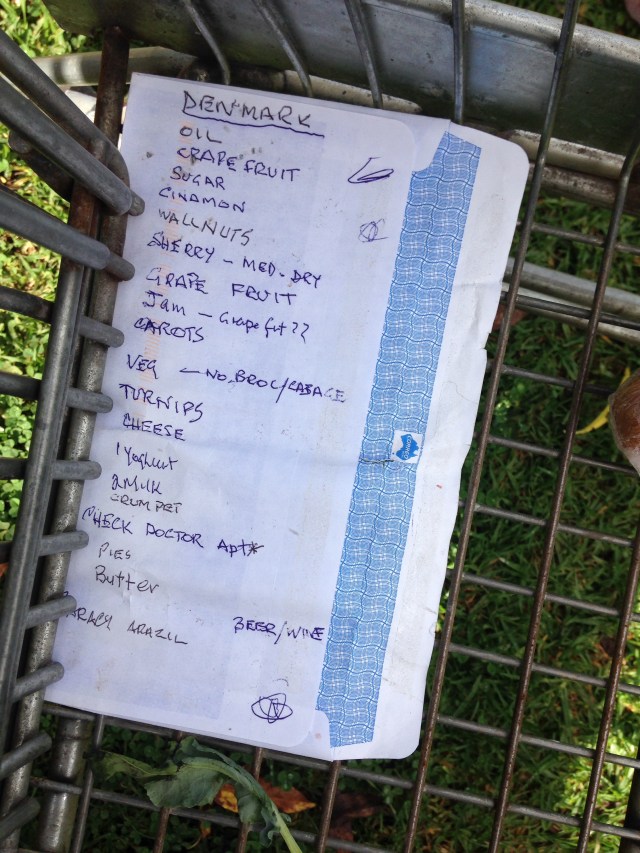 DENMARK
OIL
GRAPE FRUIT
SUGAR
CINAMON
WALLNUTS
SHERRY - MED. DRY
GRAPE FRUIT
Jam - Grapefrt??
CAROTS
VEG - NO. BROC/CABAGE
TURNIPS
CHEESE
1 Yoghurt
2 MILK
CRUMPET
CHECK DOCTOR Apt*
PIES
Butter
ARAZIL
BEER/WINE